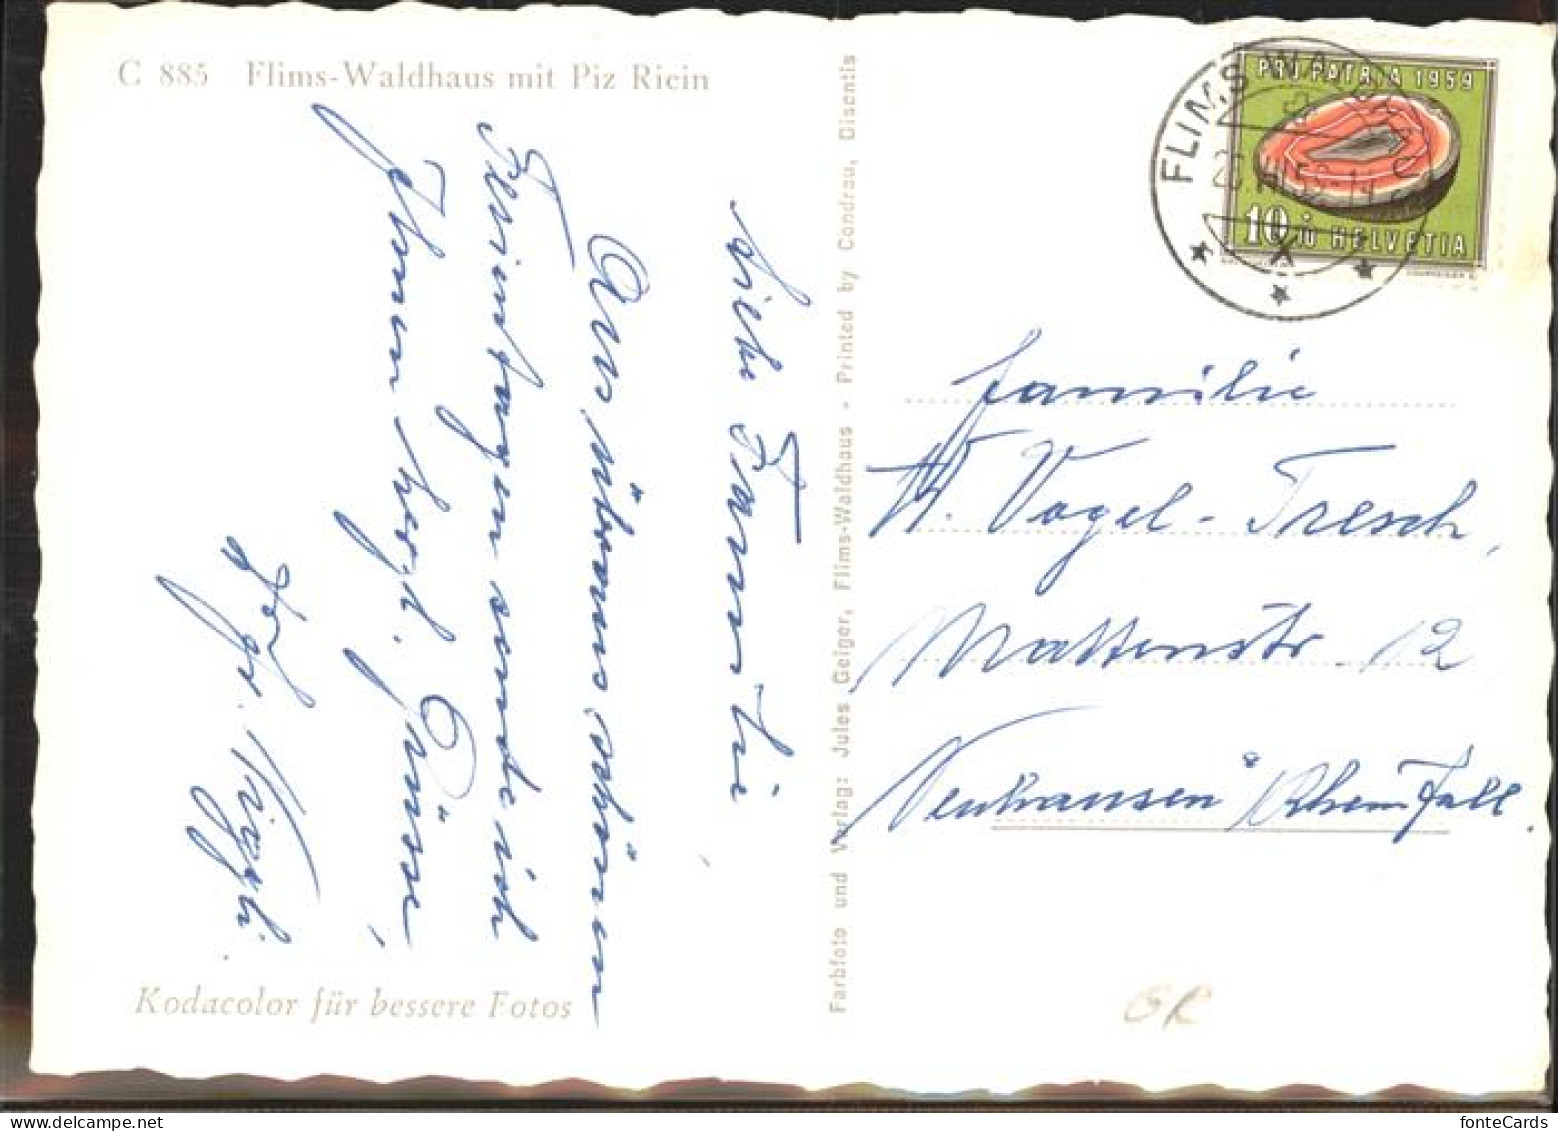 C 885 Flims-Waldhaus mit Piz Riein
Liebe Familie
Aus übernuschönen
Ferientagen sende ich
Ihnen herzl. Grüsse,
Kodacolor für bessere Fotos
Farbfoto und Verlag: Jules Geiger, Flims-Waldhaus - Printed by Condrau, Disentis
FLIMS WALDHAUS
PRO PATRIA 1959
10+10 HELVETIA
Familie
W. Vogel-Tresch,
Mattenstr. 12
Neuhausen Rheinfall.
GR
fonteCards